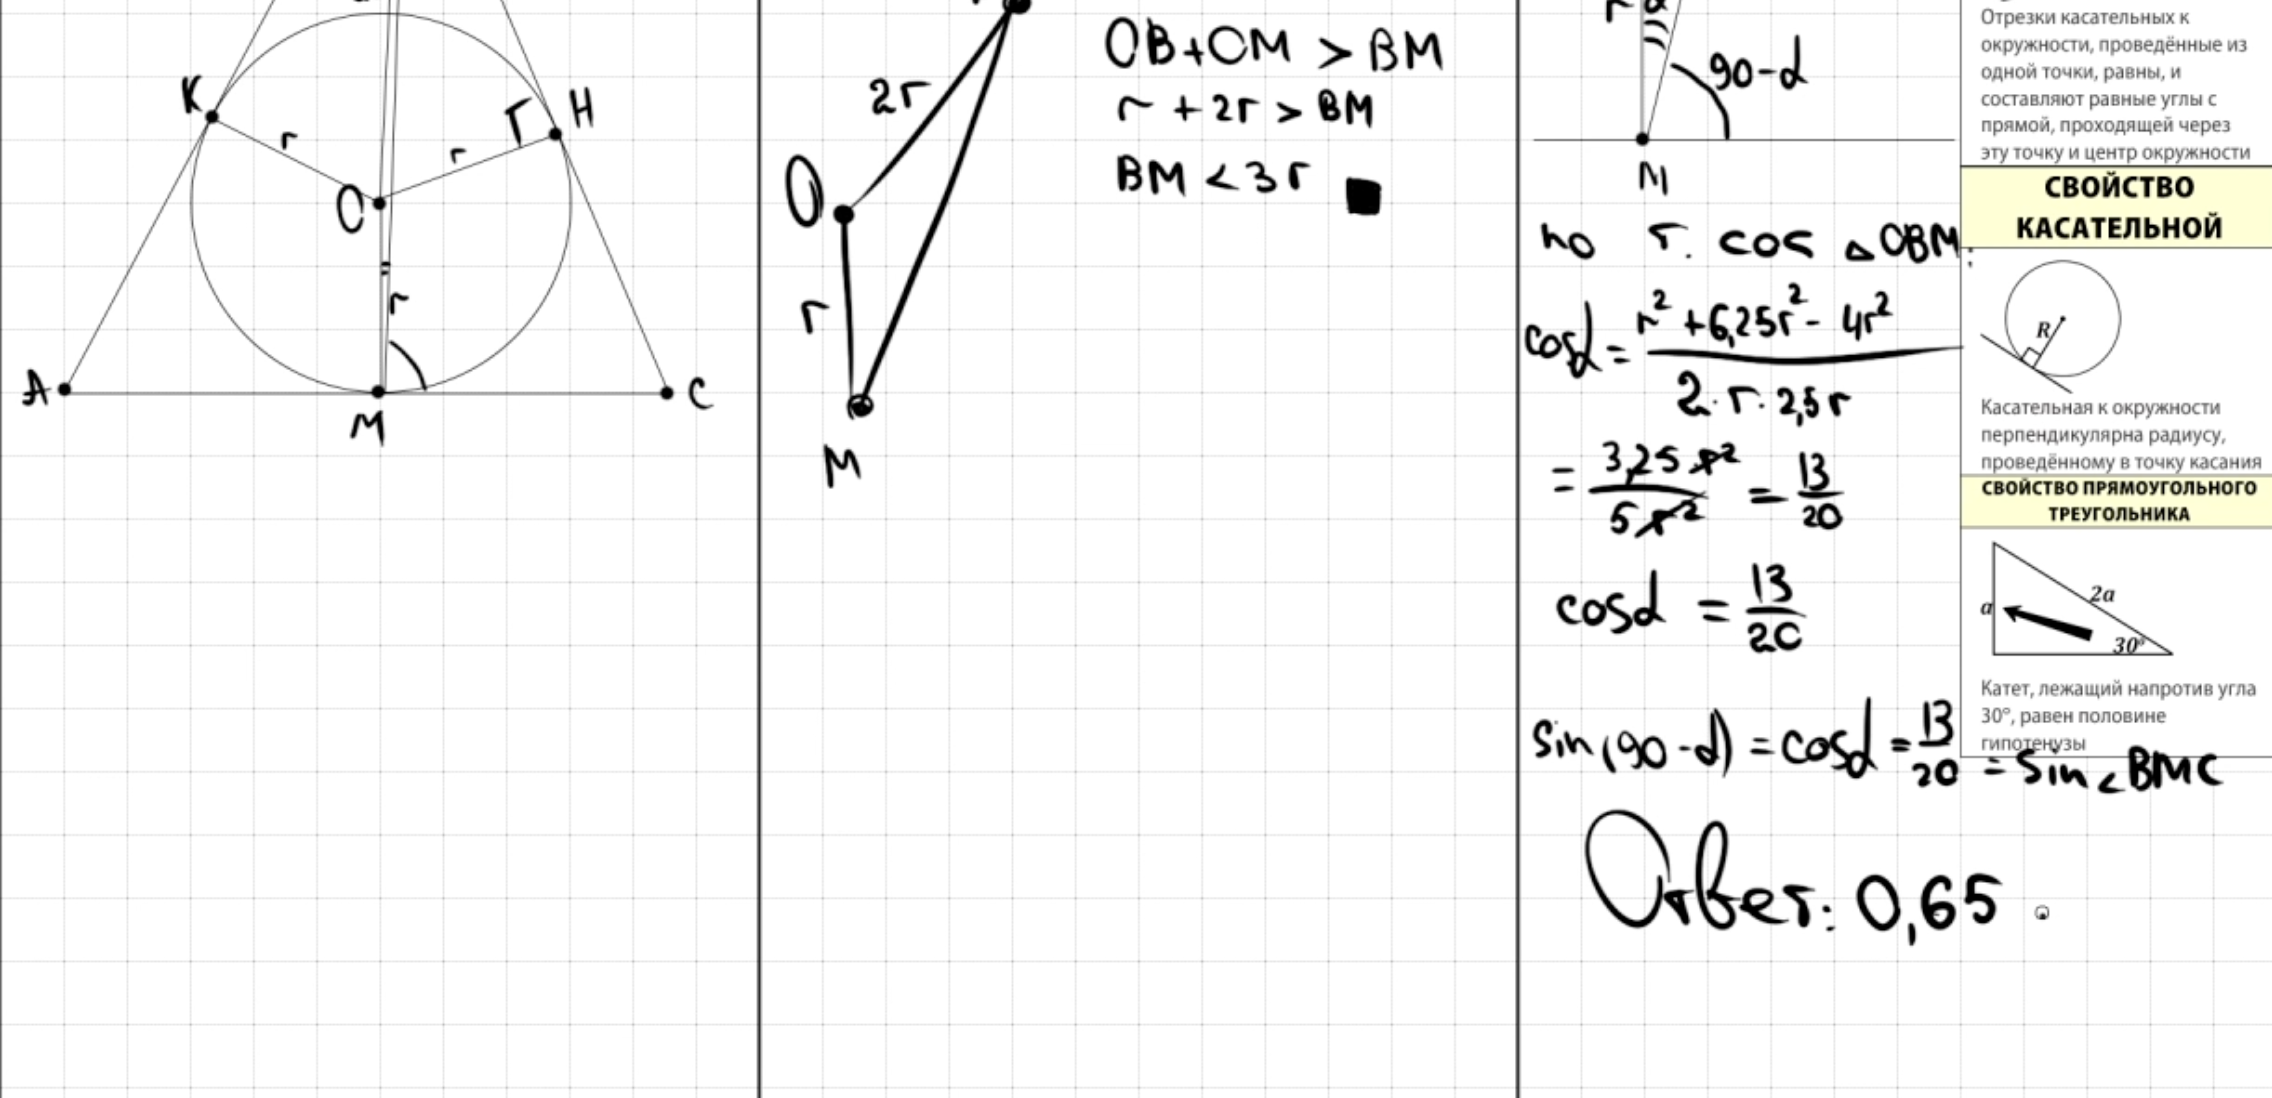 K
H
r
r
O
r
A
M
C
2r
O
r
M
OB+OM > BM
r + 2r > BM
BM < 3r
90-α
M
по т. cos △OBM:
cosα = (r² + 6,25r² - 4r²) / (2·r·2,5r)
= 3,25r² / 5r² = 13/20
cosα = 13/20
sin(90-α) = cosα = 13/20 = sin∠BMC
Ответ: 0,65
Отрезки касательных к
окружности, проведённые из
одной точки, равны, и
составляют равные углы с
прямой, проходящей через
эту точку и центр окружности
СВОЙСТВО
КАСАТЕЛЬНОЙ
R
Касательная к окружности
перпендикулярна радиусу,
проведённому в точку касания
СВОЙСТВО ПРЯМОУГОЛЬНОГО
ТРЕУГОЛЬНИКА
a
2a
30°
Катет, лежащий напротив угла
30°, равен половине
гипотенузы